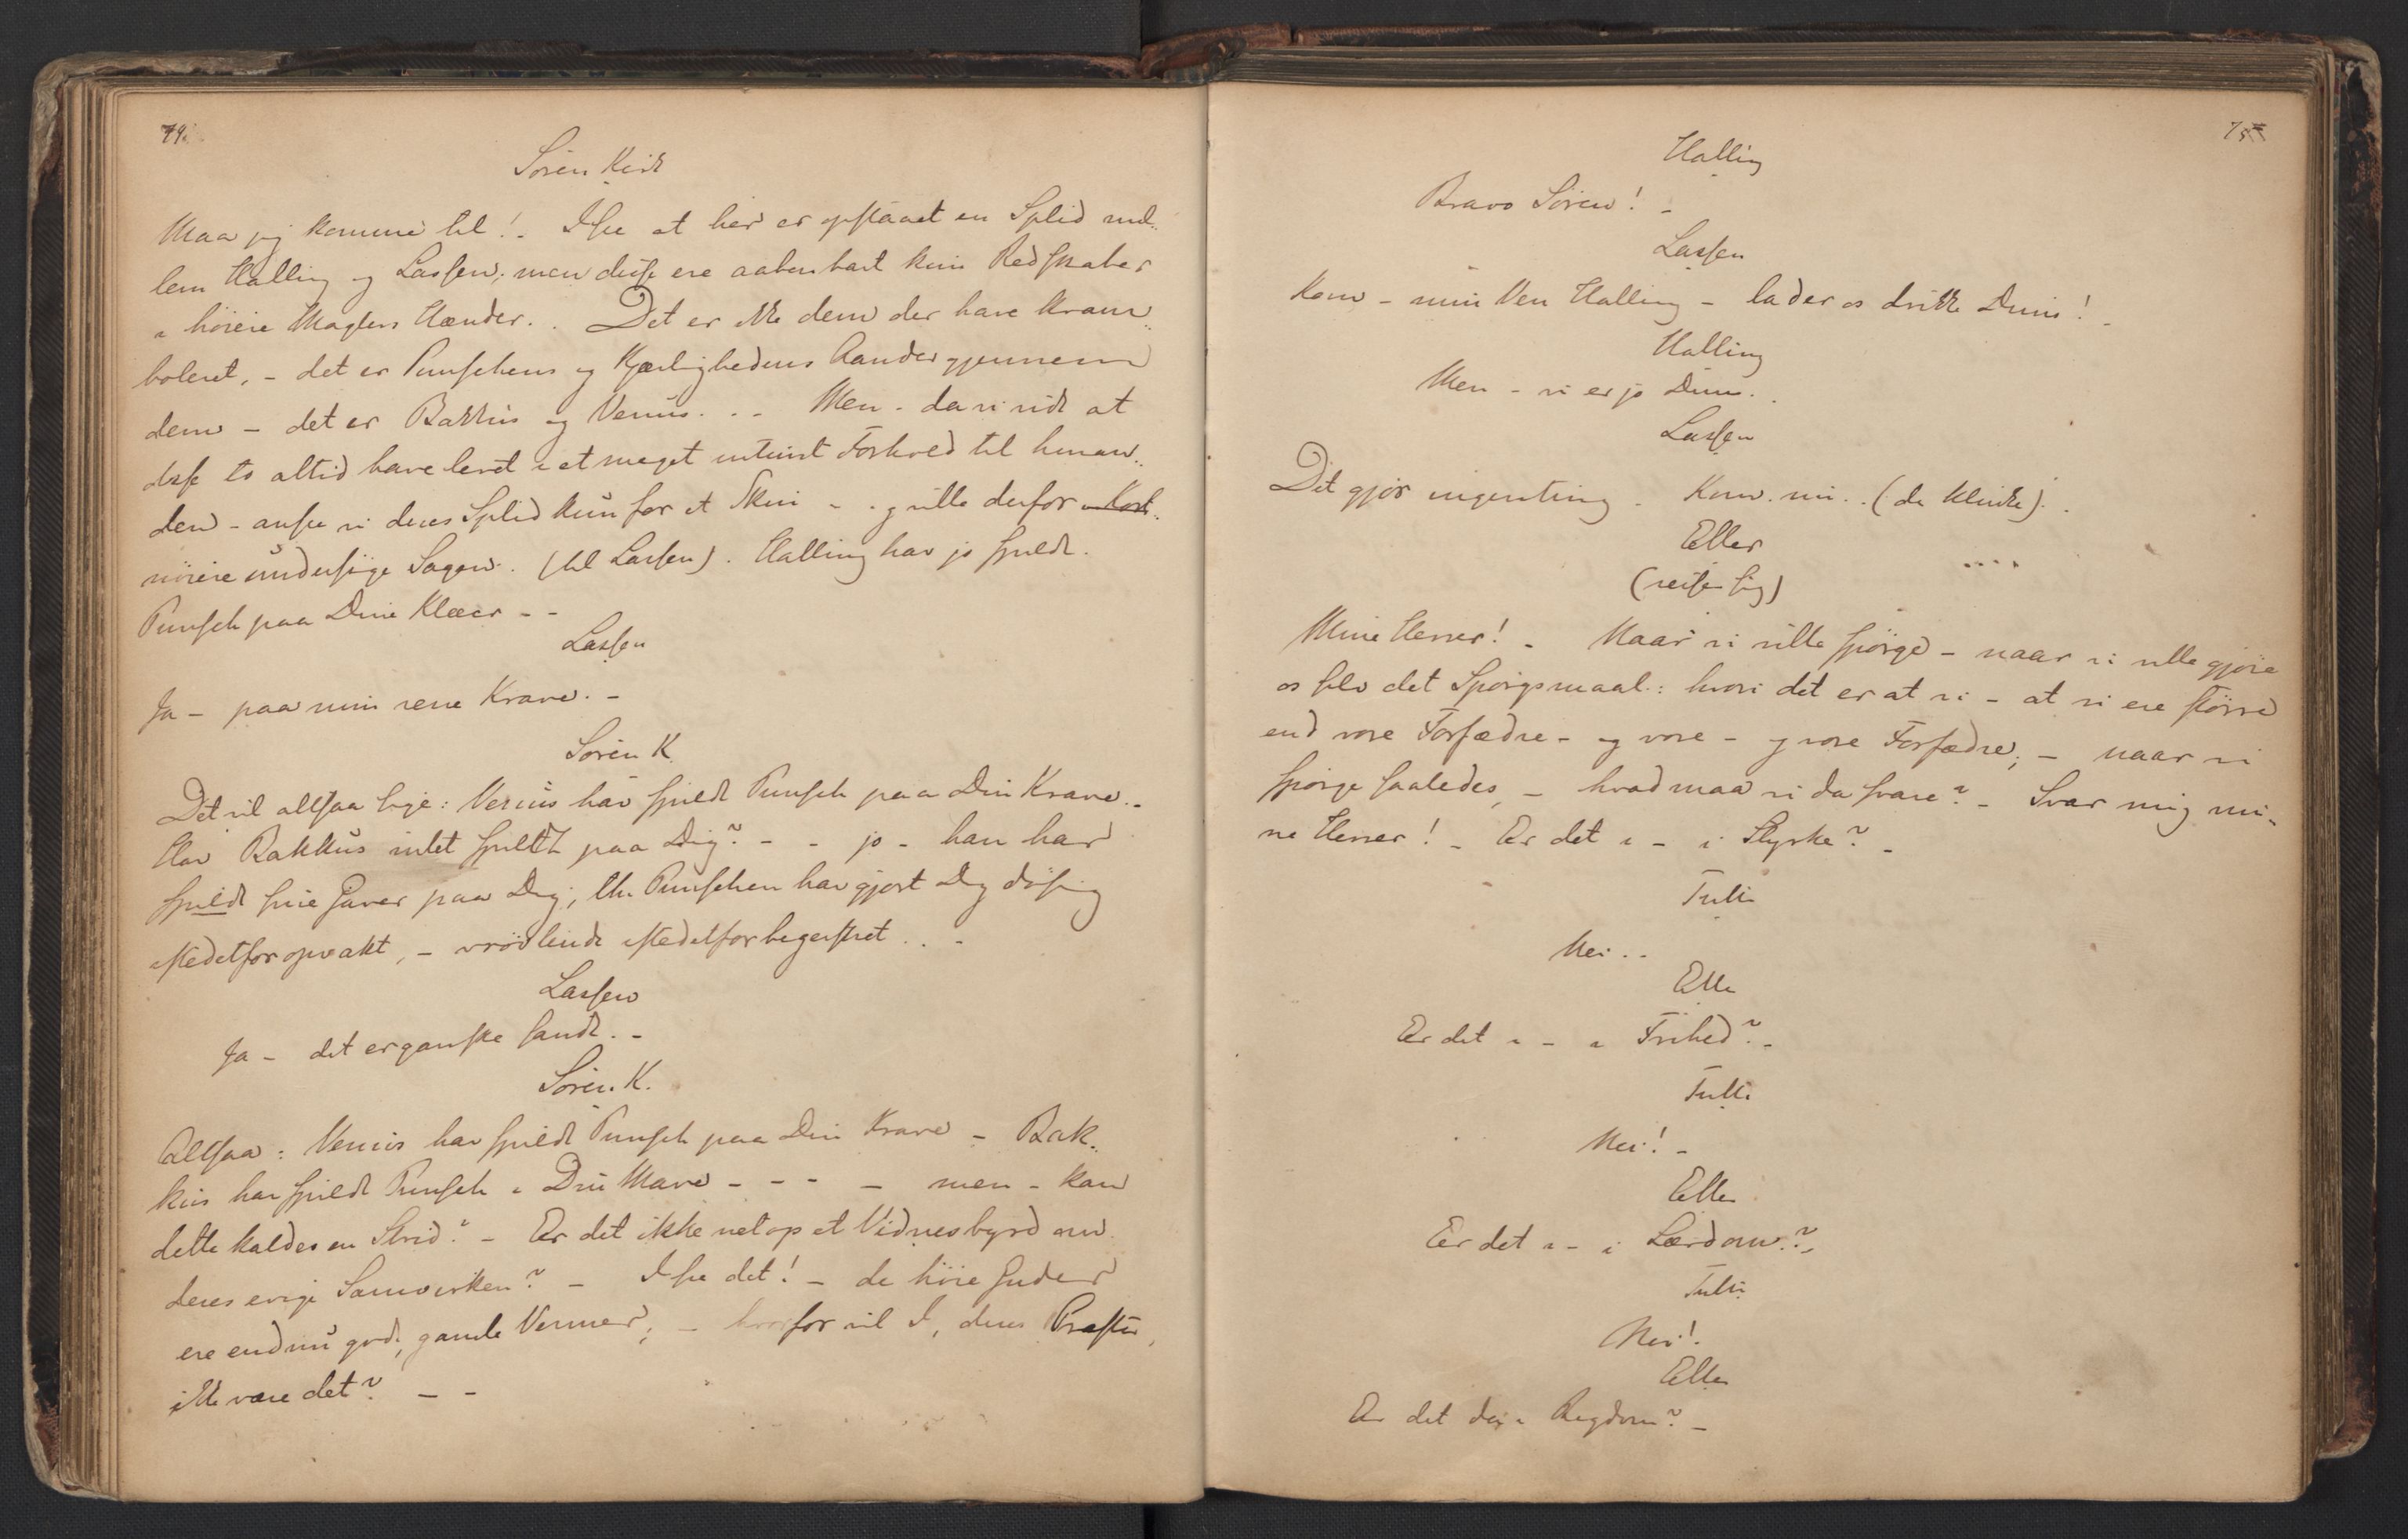 74.
Søren Kirk
Maa jeg komme til! - I see at her er opstaaet en Splid mel-
lem Halling og Lassen; men disse ere aabenbart kun Redskaber
i høiere Magters Hænder. . Det er ikke dem der have karam-
boleret, - det er Punschens og Kjærlighedens Aander gjennem
dem - det er Bakkus og Venus. - - Men - da vi vide at
disse to altid have levet i et meget intimt Forhold til hinan-
den - ansee vi deres Splid kun for et Skin - - og ville derfor
nøiere undersøge Sagen. (til Lassen). Halling har jo spildt
Punsch paa Dine Klæer - -
Lassen
Ja - paa min rene Krave. -
Søren K.
Det vil altsaa sige: Venus har spildt Punsch paa Din Krave. -
Har Bakkus intet spildt paa Dig? - - jo - han har
spildt sine Gaver paa Dig; thi Punschen har gjort Dig døsig
istedetfor opvakt, - vrøvlende istedetfor begeistret. . -
Lassen
Ja - det er ganske sandt. -
Søren K.
Altsaa: Venus har spildt Punsch paa Din Krave - Bak-
kus har spildt Punsch i Din Mave - - - - men - kan
dette kaldes en Strid? - Er det ikke netop et Vidnesbyrd om
deres evige Samvirken? - I see det! - de høie Guder
ere endnu gode, gamle Venner; - hvorfor vil I, deres Præster,
ikke være det? - -
75
Halling
Bravo Søren! -
Lassen
Kom - min Ven Halling - lader os drikke Duus! -
Halling
Men - vi er jo Duus. .
Lassen
Det gjør ingenting - Kom nu. . (de klinke). .
Eller
(reiser sig)
Mine Herrer! - Naar vi ville spørge - naar vi ville gjøre
os selv det Spørgsmaal: hvori det er at vi - at vi ere større
end vore Forfædre - og vore - og vore Forfædre; - naar vi
spørge saaledes, - hvad maa vi da svare? - Svar mig mi-
ne Herrer! - Er det i - i Styrke? -
Tulli
Nei . .
Eller
Er det i - i Frihed? -
Tulli
Nei! -
Eller
Er det i - i Lærdom? -
Tulli
Nei!
Eller
Er det da i Rigdom? -